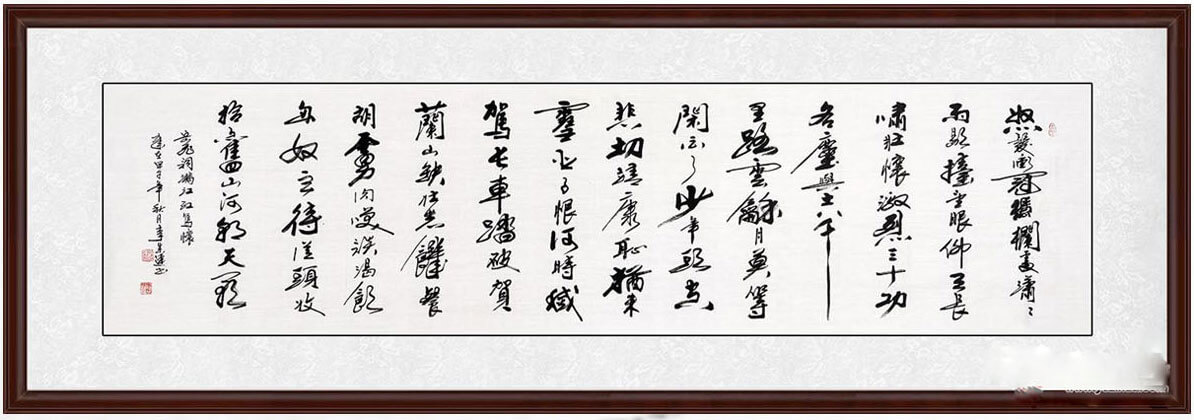 怒髮衝冠憑欄處瀟〻
雨歇擡望眼仰天長
嘯壯懷激烈三十功
名塵與土八千
里路雲龢月莫等
閑白了少年頭空
悲切靖康恥猶未
雪臣子恨何時滅
駕長車踏破賀
蘭山缺壯志饑餐
胡虜肉笑談渴飲
匈奴血待從頭收
拾舊山河朝天闕
岳飛詞滿江紅寫懷
歲在甲子年秋月李